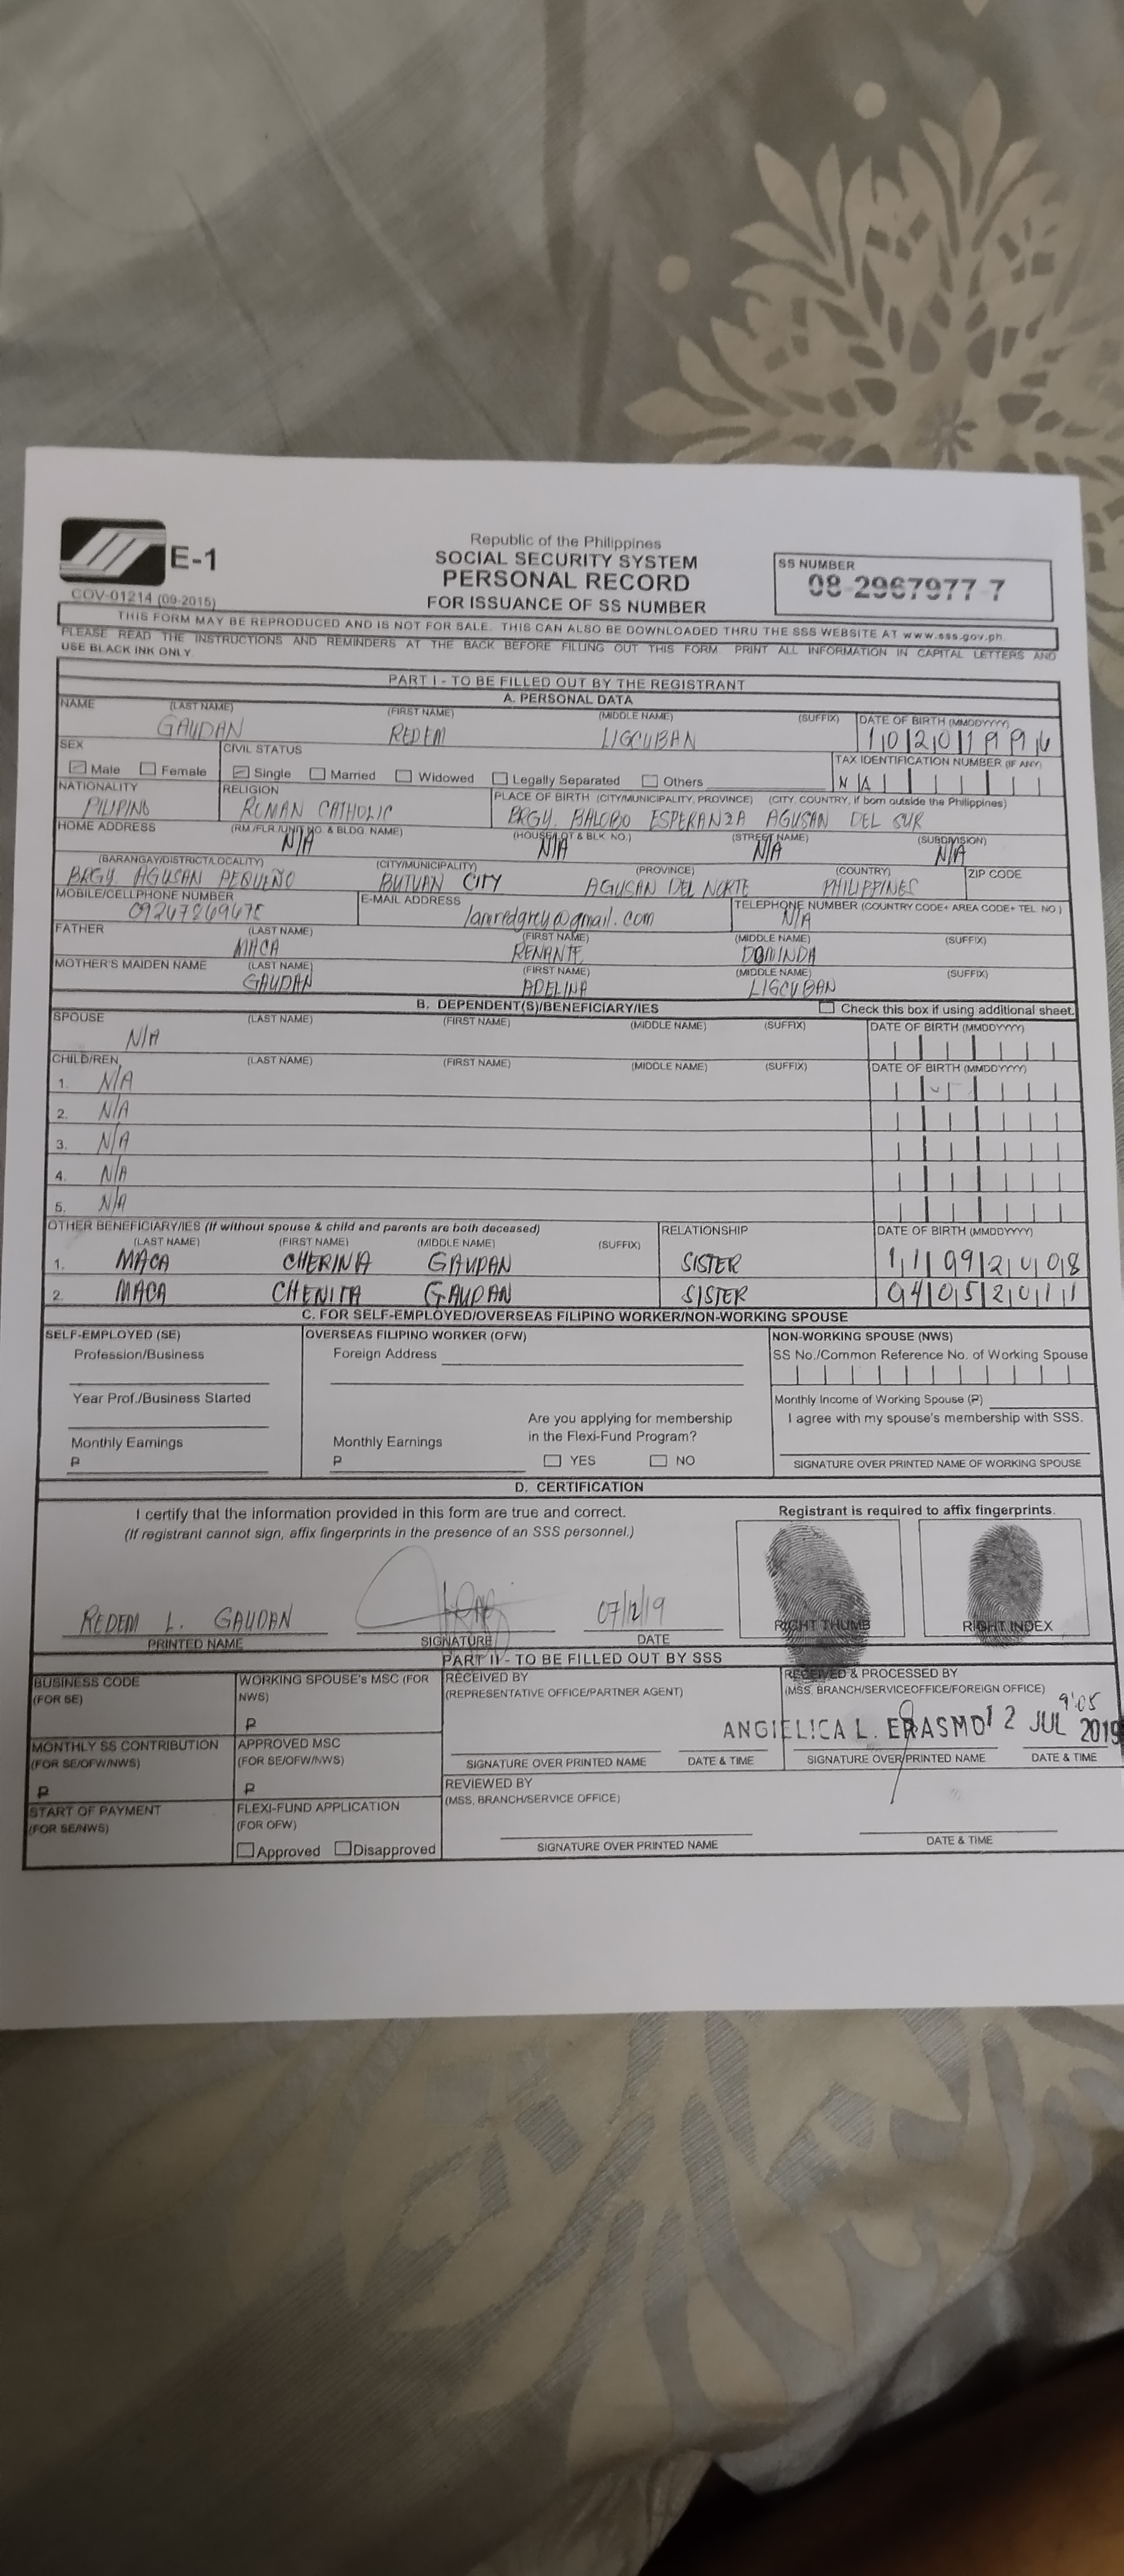 E-1
COV-01214 (09-2015)
Republic of the Philippines
SOCIAL SECURITY SYSTEM
PERSONAL RECORD
FOR ISSUANCE OF SS NUMBER
SS NUMBER
08-2967977-7
THIS FORM MAY BE REPRODUCED AND IS NOT FOR SALE. THIS CAN ALSO BE DOWNLOADED THRU THE SSS WEBSITE AT www.sss.gov.ph.
PLEASE READ THE INSTRUCTIONS AND REMINDERS AT THE BACK BEFORE FILLING OUT THIS FORM PRINT ALL INFORMATION IN CAPITAL LETTERS AND
USE BLACK INK ONLY.
PART I - TO BE FILLED OUT BY THE REGISTRANT
A. PERSONAL DATA
NAME (LAST NAME) (FIRST NAME) (MIDDLE NAME) (SUFFIX) DATE OF BIRTH (MMDDYYYY)
GAUDAN REDEM LIGCUBAN 10201996
SEX CIVIL STATUS TAX IDENTIFICATION NUMBER (IF ANY)
Male Female Single Married Widowed Legally Separated Others N A
NATIONALITY RELIGION PLACE OF BIRTH (CITY/MUNICIPALITY, PROVINCE) (CITY, COUNTRY, if born outside the Philippines)
PILIPINO ROMAN CATHOLIC BRGY. BALOBO ESPERANZA AGUSAN DEL SUR
HOME ADDRESS (RM./FLR./UNIT NO. & BLDG NAME) (HOUSE/LOT & BLK. NO.) (STREET NAME) (SUBDIVISION)
N/A N/A N/A N/A
(BARANGAY/DISTRICT/LOCALITY) (CITY/MUNICIPALITY) (PROVINCE) (COUNTRY) ZIP CODE
BRGY AGUSAN PEQUEÑO BUTUAN CITY AGUSAN DEL NORTE PHILIPPINES
MOBILE/CELLPHONE NUMBER E-MAIL ADDRESS TELEPHONE NUMBER (COUNTRY CODE+ AREA CODE+ TEL. NO.)
Iamredgrey@gmail.com N/A
FATHER (LAST NAME) (FIRST NAME) (MIDDLE NAME) (SUFFIX)
MACA RENANTE
MOTHER'S MAIDEN NAME (LAST NAME) (FIRST NAME) (MIDDLE NAME) (SUFFIX)
GAUDAN ADELINA LIGCUBAN
B. DEPENDENT(S)/BENEFICIARY/IES Check this box if using additional sheet.
SPOUSE (LAST NAME) (FIRST NAME) (MIDDLE NAME) (SUFFIX) DATE OF BIRTH (MMDDYYYY)
N/A
CHILD/REN (LAST NAME) (FIRST NAME) (MIDDLE NAME) (SUFFIX) DATE OF BIRTH (MMDDYYYY)
1. N/A
2. N/A
3. N/A
4. N/A
5. N/A
OTHER BENEFICIARY/IES (If without spouse & child and parents are both deceased) RELATIONSHIP DATE OF BIRTH (MMDDYYYY)
(LAST NAME) (FIRST NAME) (MIDDLE NAME) (SUFFIX)
1. MACA CHERINA GAUDAN SISTER
2. MACA CHENITA GAUDAN SISTER 04052011
C. FOR SELF-EMPLOYED/OVERSEAS FILIPINO WORKER/NON-WORKING SPOUSE
SELF-EMPLOYED (SE) OVERSEAS FILIPINO WORKER (OFW) NON-WORKING SPOUSE (NWS)
Profession/Business Foreign Address SS No./Common Reference No. of Working Spouse
Year Prof./Business Started Monthly Income of Working Spouse (₱)
Are you applying for membership I agree with my spouse's membership with SSS.
Monthly Earnings Monthly Earnings in the Flexi-Fund Program?
₱ ₱ YES NO SIGNATURE OVER PRINTED NAME OF WORKING SPOUSE
D. CERTIFICATION
I certify that the information provided in this form are true and correct. Registrant is required to affix fingerprints.
(If registrant cannot sign, affix fingerprints in the presence of an SSS personnel.)
REDEM L. GAUDAN 07/12/19
RIGHT THUMB RIGHT INDEX
PRINTED NAME SIGNATURE DATE
PART II - TO BE FILLED OUT BY SSS
BUSINESS CODE WORKING SPOUSE'S MSC (FOR RECEIVED BY RECEIVED & PROCESSED BY
(FOR SE) NWS) (REPRESENTATIVE OFFICE/PARTNER AGENT) (MSS, BRANCH/SERVICE OFFICE/FOREIGN OFFICE)
₱ 9:05
ANGIELICA L. ERASMO 12 JUL 2019
MONTHLY SS CONTRIBUTION APPROVED MSC
(FOR SE/OFW/NWS) (FOR SE/OFW/NWS) SIGNATURE OVER PRINTED NAME DATE & TIME SIGNATURE OVER PRINTED NAME DATE & TIME
₱ ₱ REVIEWED BY
(MSS, BRANCH/SERVICE OFFICE)
START OF PAYMENT FLEXI-FUND APPLICATION
(FOR SE/NWS) (FOR OFW)
Approved Disapproved SIGNATURE OVER PRINTED NAME DATE & TIME